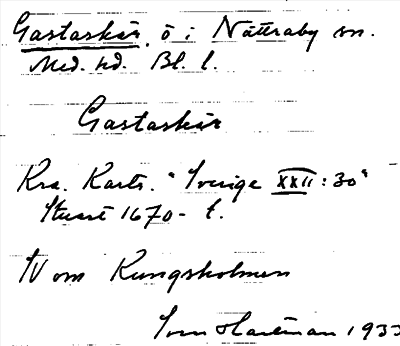 Gastaskär, ö i Nättraby sn.
Med. hd. Bl. l.
Gastaskär
Kra. Kartv. "Sverige XXII: 30"
Stuart 1670- t.
NV om Kungsholmen
Sven Hartman 1933